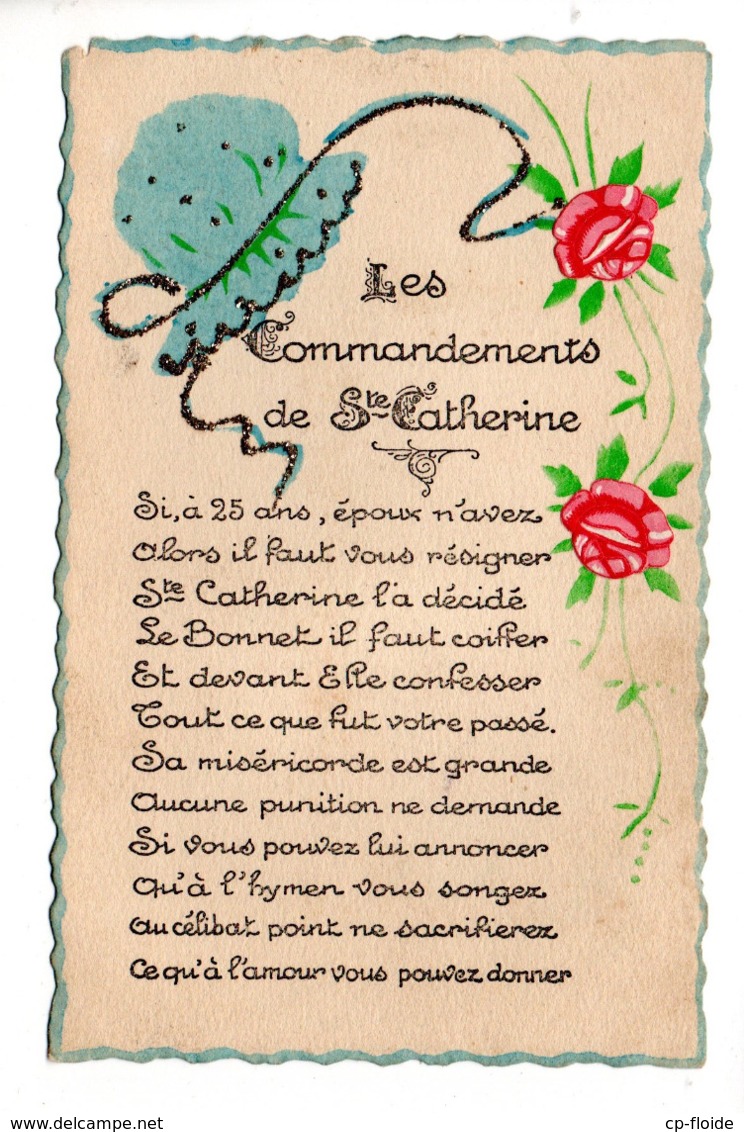 Les
Commandements
de Ste Catherine
Si, à 25 ans, époux n'avez
Alors il faut vous résigner
Ste Catherine l'a décidé
Le Bonnet il faut coiffer
Et devant Elle confesser
Tout ce que fut votre passé.
Sa miséricorde est grande
Aucune punition ne demande
Si vous pouvez lui annoncer
Qu'à l'hymen vous songez
Au célibat point ne sacrifierez
Ce qu'à l'amour vous pouvez donner
www.delcampe.net
cp-floide